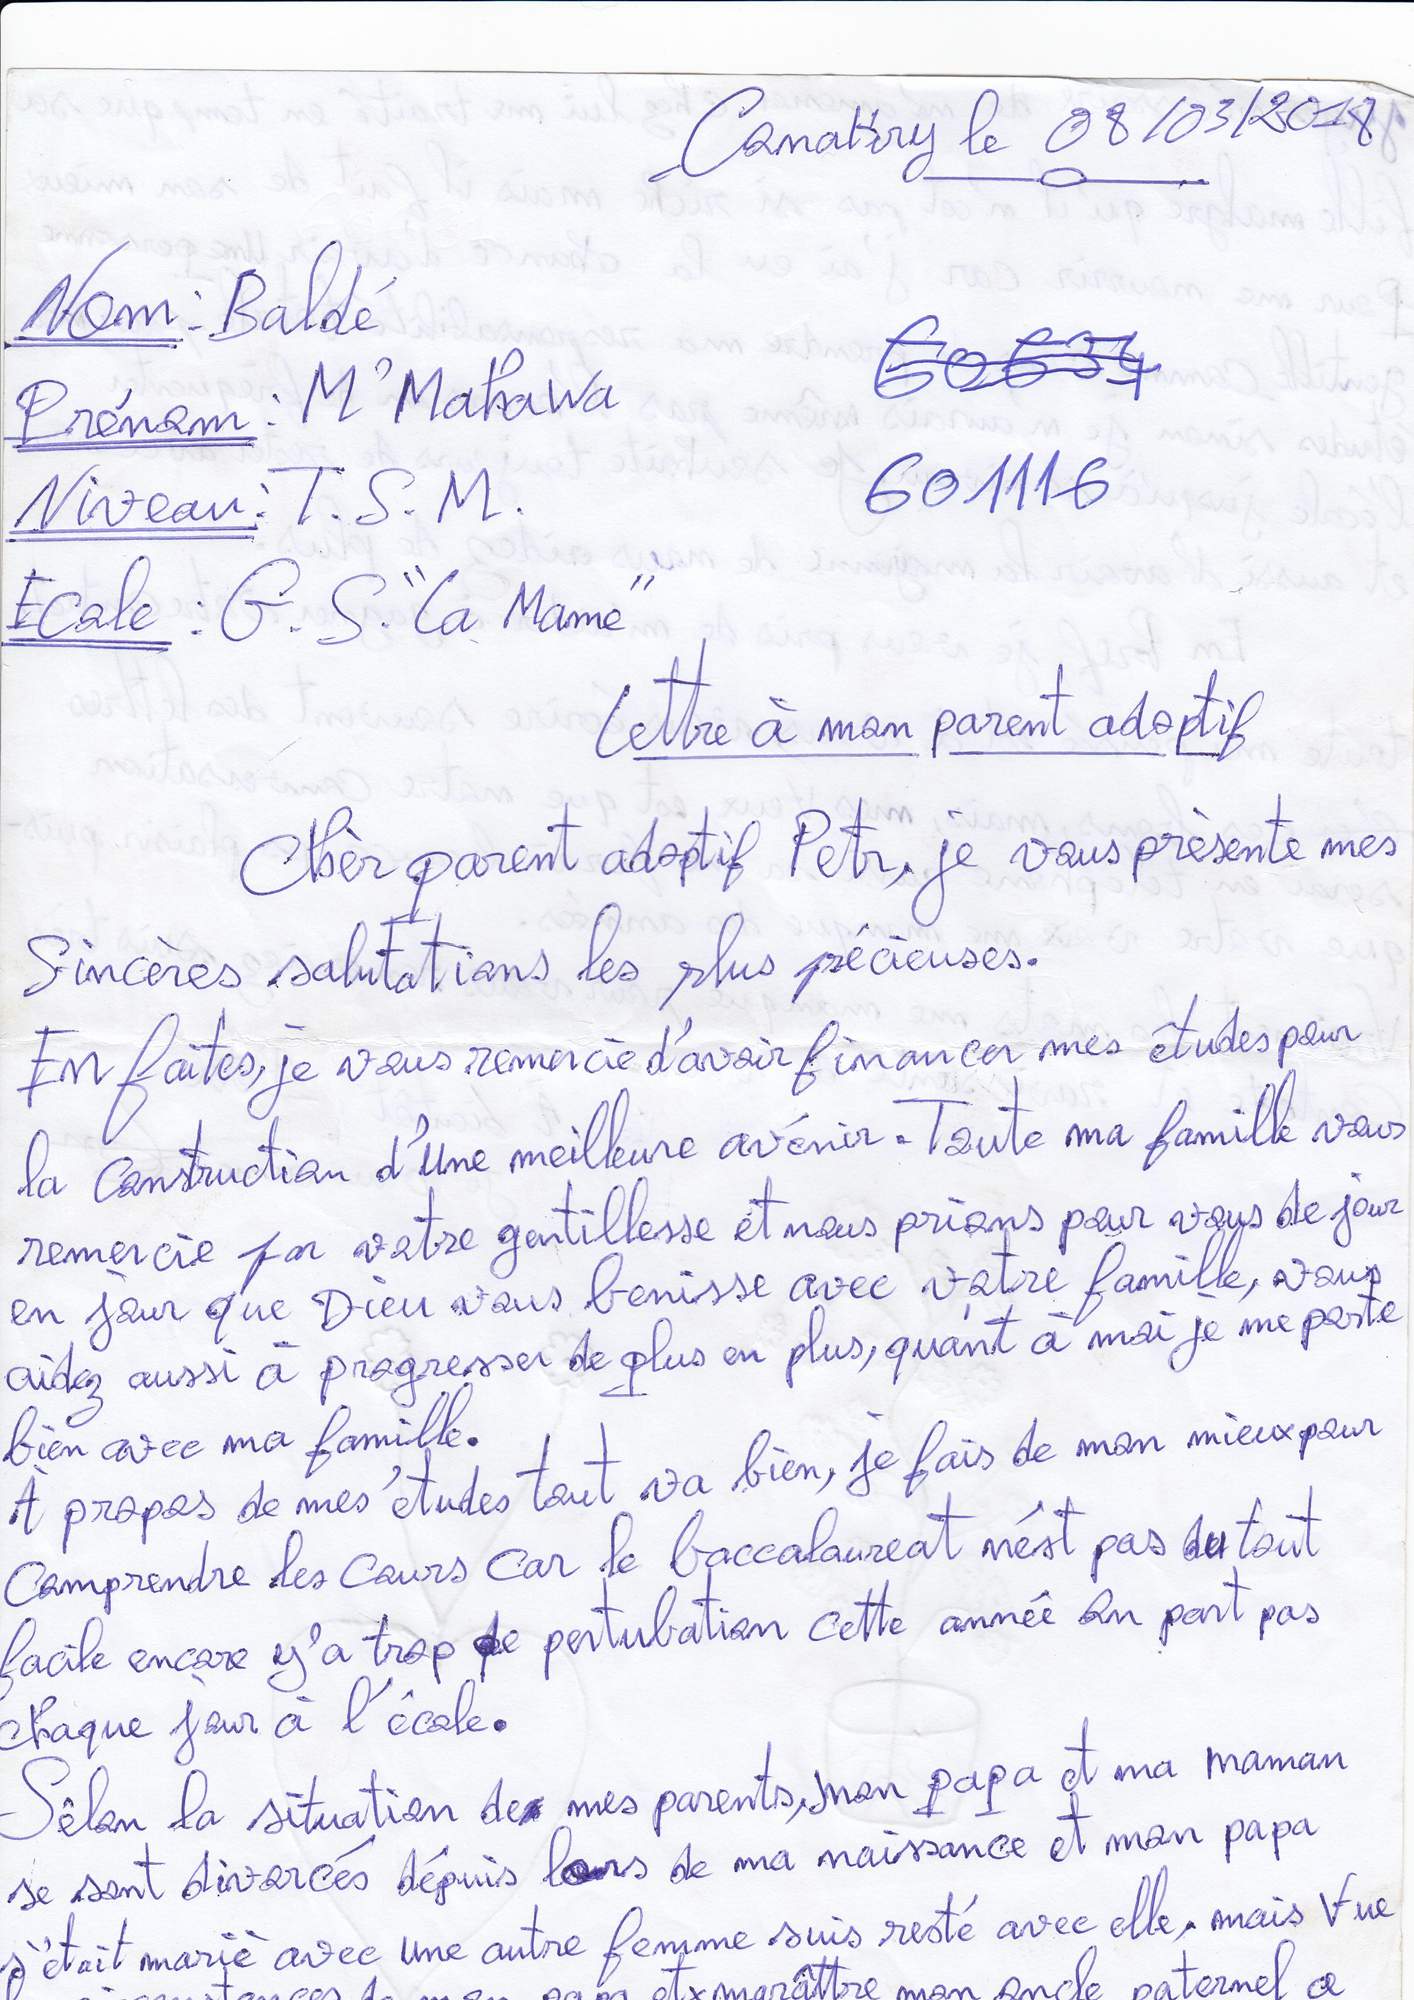 Conakry le 08/03/2018
Nom: Baldé
Prénom: M'Mahawa
60634
Niveau: T.S.M.
601116
Ecole: G.S. "La Mame"
Lettre à mon parent adoptif
Chèr parent adoptif Petr, je vous prèsente mes
Sincères salutations les plus précieuses.
En faites, je vous remercie d'avoir financer mes études pour
la construction d'une meilleure avénir. Toute ma famille vous
remercie par votre gentillesse et nous prions pour vous de jour
en jour que Dieu vous benisse avec votre famille, vous
aidez aussi à progresser de plus en plus, quant à moi je me porte
bien avec ma famille.
À propos de mes études tout va bien, je fais de mon mieux pour
comprendre les cours car le baccalaureat n'ést pas du tout
facile encore y'a trop de pertubation cette année on part pas
chaque jour à l'école.
Sélon la situation de mes parents, mon papa et ma maman
se sont divorcés dépuis lors de ma naissance et mon papa
s'était marié avec une autre femme suis resté avec elle. mais vue
de mon papa et marâttre mon oncle paternel a